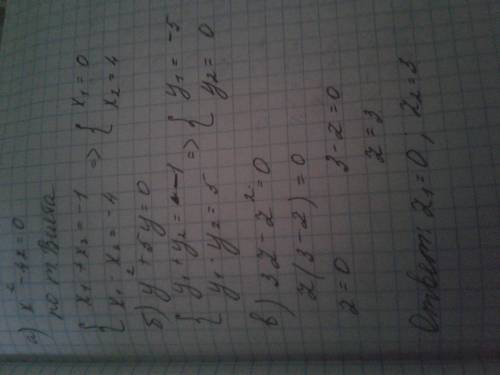 а) x² - 4x = 0
по т. Виета
{ x₁ + x₂ = -1 => { x₁ = 0
{ x₁ · x₂ = -4 { x₂ = 4
б) y² + 5y = 0
{ y₁ + y₂ = -1 => { y₁ = -5
{ y₁ · y₂ = 5 { y₂ = 0
в) 3z - z² = 0
z(3 - z) = 0
z = 0 3 - z = 0
z = 3
Ответ: z₁ = 0; z₂ = 3